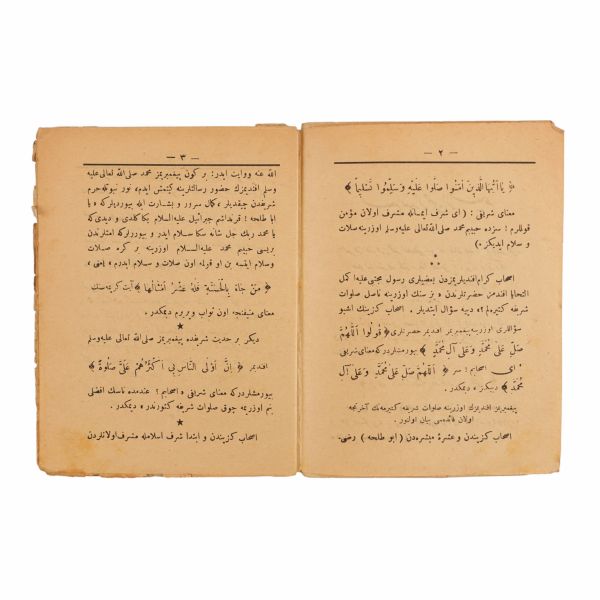 — ٢ —
﴿ يَا اَيُّهَا الَّذِينَ اٰمَنُوا صَلُّوا عَلَيْهِ وَ سَلِّمُوا تَسْلِيمًا ﴾
معنای شریفی : ( ای شرف ایمـانله مشرف اولان مؤمن
قوللرم ! سزده حبیبم محمد صلی‌الله تعالی‌علیه وسلم اوزرینه صلات
و سلام ایدیكز. )
اصحاب كرام افندیلریمزدن بعضیلری رسول مجتبی علیه اكمل
التحایا افندمز حضرتلرندن « بز سنك اوزرینه ناصل صلوات
كتیره‌لم ؟ » دییه سؤال ایتدیلر . اصحاب كزینك اشبو
سؤاللری اوزرینه پیغمبریمز افندیمز حضرتلری ﴿ قُولُوا اَللّٰهُمَّ
صَلِّ عَلٰى مُحَمَّدٍ وَ عَلٰى آلِ مُحَمَّدٍ ﴾ بیورمشلردركه معنای شریفی
« ای اصحابم ! سز ﴿ اَللّٰهُمَّ صَلِّ عَلٰى مُحَمَّدٍ وَ عَلٰى آلِ
مُحَمَّدٍ ﴾ دییكز . » دیمكدر.
پیغمبریمز افندیمزك اوزرینه صلوات شریفه كتیرمه‌نك آخرتجه
اولان فائده‌سی بیان اولنور .
اصحاب كزیندن و عشرۀ مبشره‌دن ( ابو طلحه ) رضی
— ٣ —
الله عنه روایت ایدر: بر كون پیغمبریمز محمد صلی‌الله تعالی‌علیه
وسلم افندیمزك حضور رسالتلرینه كیتمش ایدم، نور نبوتله حرم
شریفدن چیقدیلر، كمال سرور و بشارت ایله بیوردیلركه « یا
ابا طلحه ! قرنداشم جبرائیل علیه‌السلام یكا كلدی و دیدی كه
یا محمد ربك جل شانه سكا سلام ایدر و بیوررلركه امتلرندن
بریسی حبیبم محمد علیه‌السلام اوزرینه بر كره صلات
وسلام ایتسه بن او قولمه اون صلات و سلام ایدرم » یعنی ،
﴿ مَنْ جَاءَ بِالْحَسَنَةِ فَلَهُ عَشْرُ اَمْثَالِهَا ﴾ آیت كریمه‌سنك
معنای منیفنجه اون ثواب ویریرم دیمكدر .
دیكر بر حدیث شریفنده پیغمبریمز صلی الله تعالی علیه وسلم
افندیمز ﴿ اِنَّ اَوْلَى النَّاسِ بِى اَكْثَرُهُمْ عَلَىَّ صَلٰوةً ﴾
بیورمشلردركه معنای شریفی « اصحابم ! عندمده ناسك افضلی
بنم اوزریمه چوق صلوات شریفه كتورندر » دیمكدر .
اصحاب كزیندن و ابتدا شرف اسلامله مشرف اولانلردن